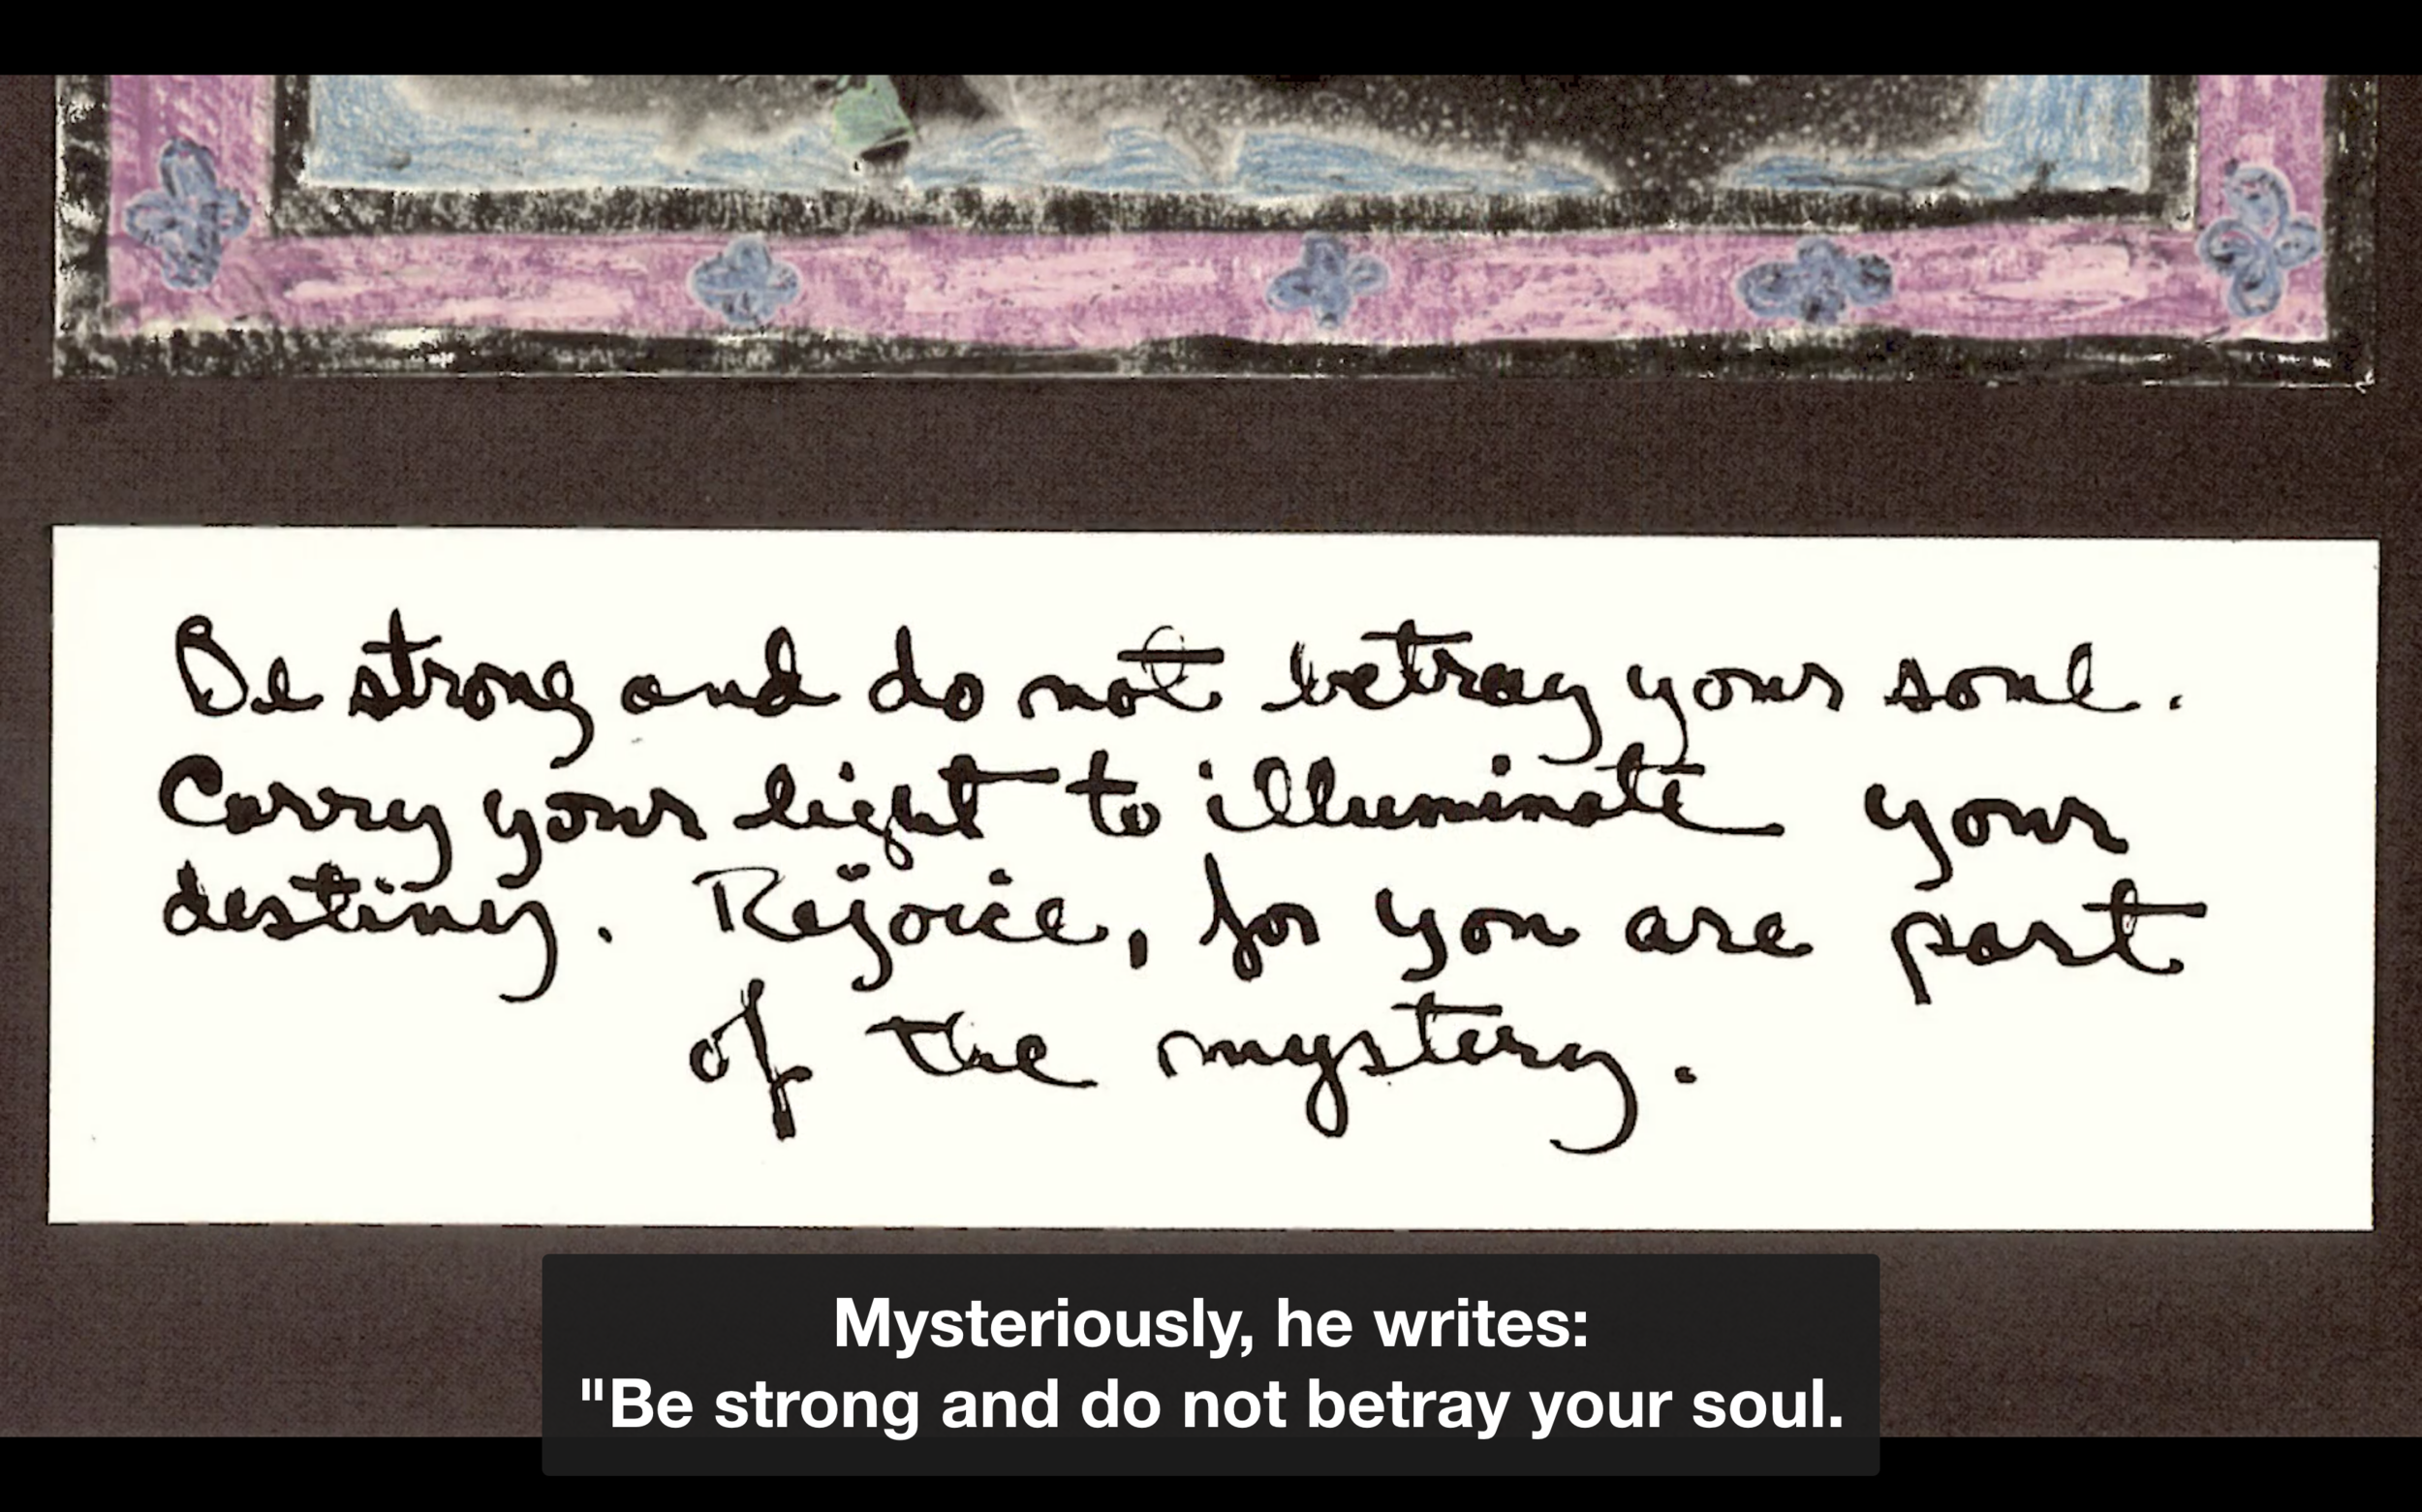 Be strong and do not betray your soul.
Carry your light to illuminate your
destiny. Rejoice, for you are part
of the mystery.
Mysteriously, he writes:
"Be strong and do not betray your soul.